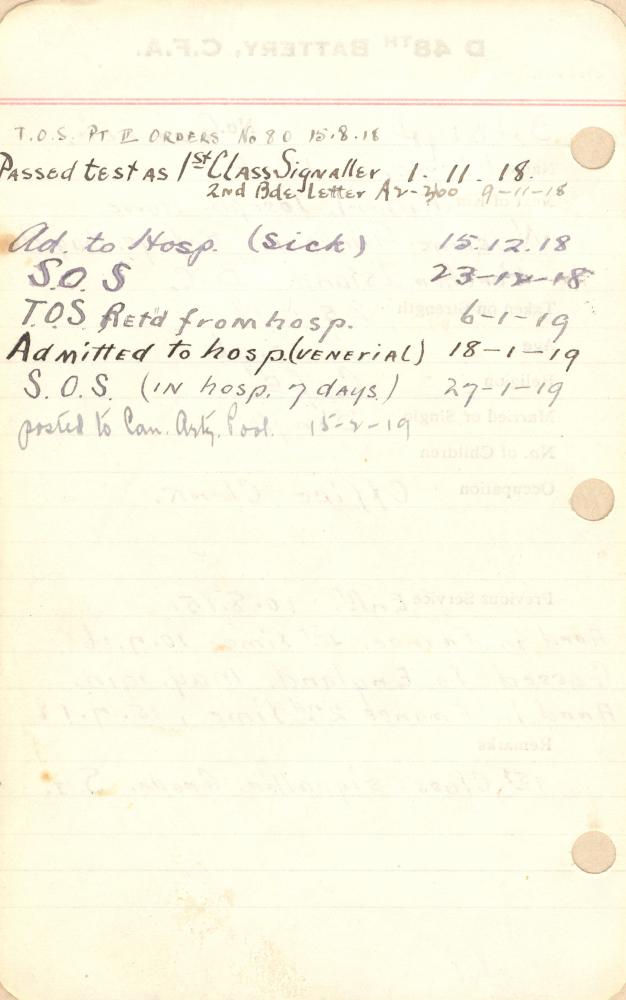 T.O.S. PT II ORDERS No 80 15.8.18
Passed test as 1st Class Signaller 1. 11. 18.
2nd Bde Letter A2-300 9-11-18
Ad. to Hosp. (Sick) 15.12.18
S.O.S 23-12-18
T.O.S Ret'd from hosp. 6-1-19
Admitted to hosp. (VENERIAL) 18-1-19
S.O.S. (IN hosp. 7 days.) 27-1-19
posted to Can. Arty. Pool. 15-2-19